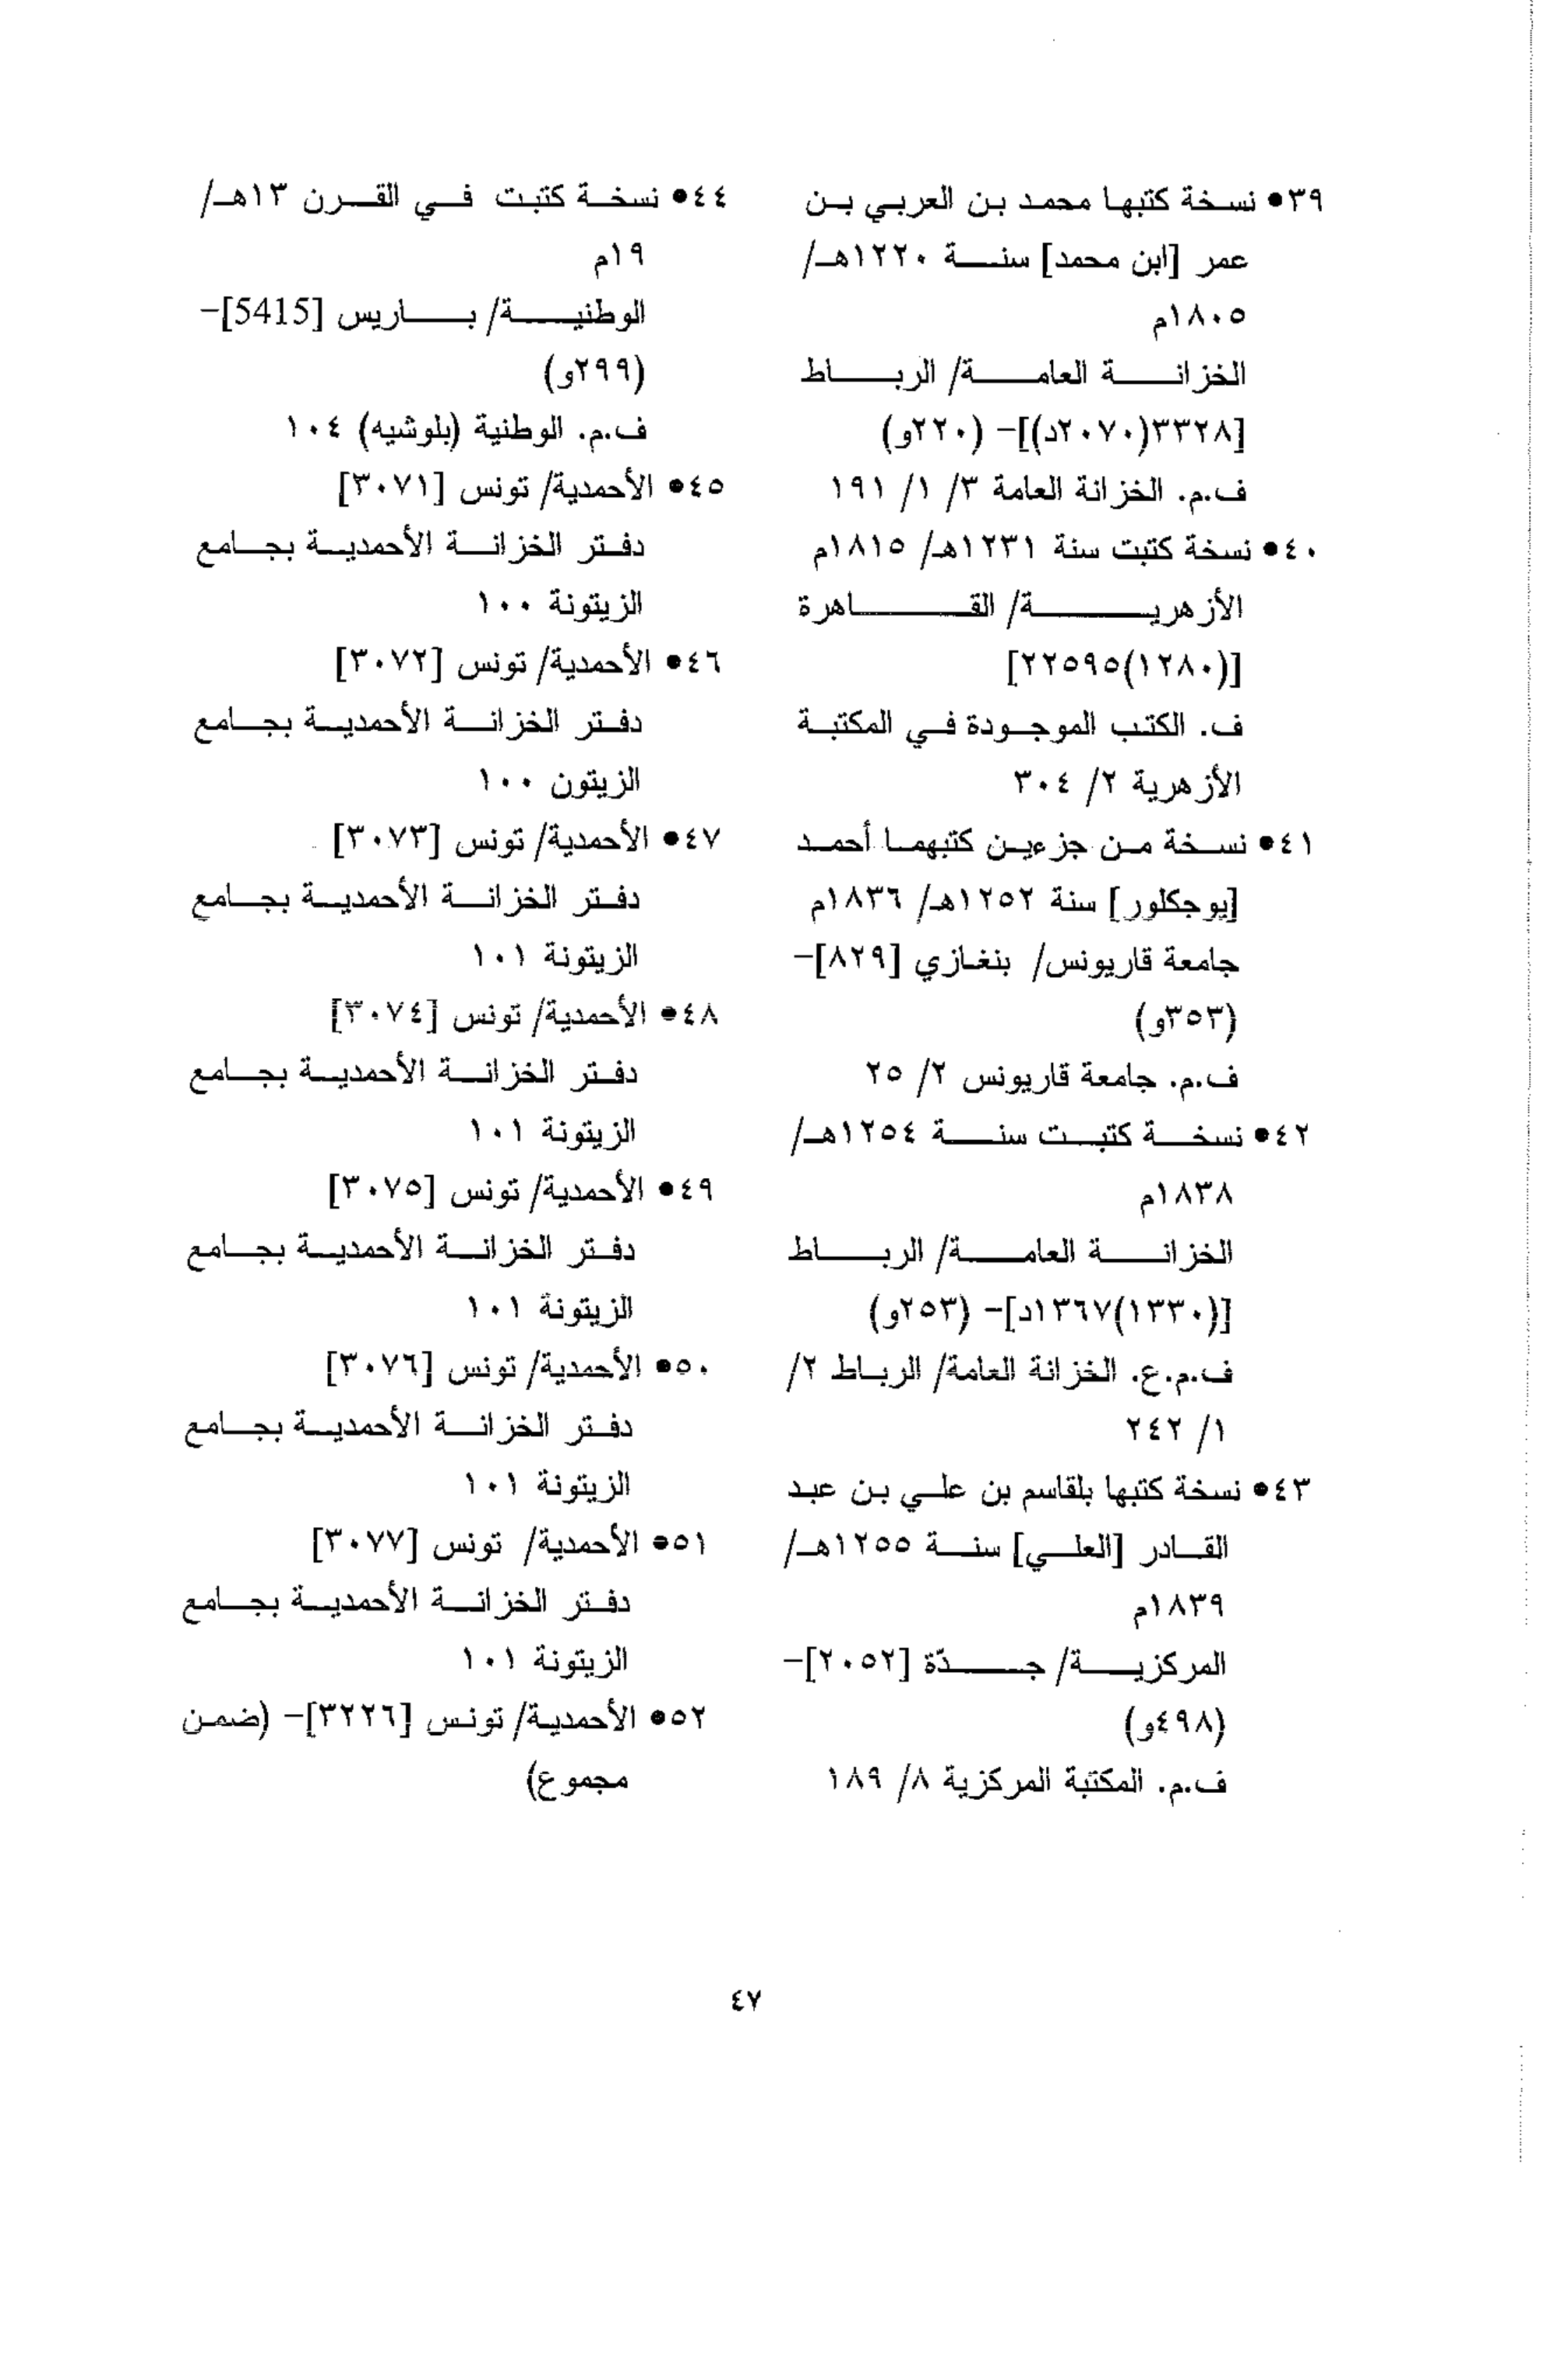 ٣٩• نسخة كتبها محمد بن العربي بن
عمر [ابن محمد] سنة ١٢٢٠هـ/
١٨٠٥م
الخزانة العامة/ الرباط
[٣٣٢٨(٢٠٧٠د)]- (٢٢٠و)
ف.م. الخزانة العامة ٣/ ١/ ١٩١
٤٠• نسخة كتبت سنة ١٢٣١هـ/ ١٨١٥م
الأزهرية/ القاهرة
[(١٢٨٠)٢٢٥٩٥]
ف. الكتب الموجودة في المكتبة
الأزهرية ٢/ ٣٠٤
٤١• نسخة من جزءين كتبهما أحمد
[يوجكلور] سنة ١٢٥٢هـ/ ١٨٣٦م
جامعة قاريونس/ بنغازي [٨٢٩]-
(٣٥٣و)
ف.م. جامعة قاريونس ٢/ ٢٥
٤٢• نسخة كتبت سنة ١٢٥٤هـ/
١٨٣٨م
الخزانة العامة/ الرباط
[(١٣٣٠)١٣٦٧د]- (٢٥٣و)
ف.م.ع. الخزانة العامة/ الرباط ٢/
١/ ٢٤٢
٤٣• نسخة كتبها بلقاسم بن علي بن عبد
القادر [العلي] سنة ١٢٥٥هـ/
١٨٣٩م
المركزية/ جدّة [٢٠٥٢]-
(٤٩٨و)
ف.م. المكتبة المركزية ٨/ ١٨٩
٤٤• نسخة كتبت في القرن ١٣هـ/
١٩م
الوطنية/ باريس [5415]-
(٢٩٩و)
ف.م. الوطنية (بلوشيه) ١٠٤
٤٥• الأحمدية/ تونس [٣٠٧١]
دفتر الخزانة الأحمدية بجامع
الزيتونة ١٠٠
٤٦• الأحمدية/ تونس [٣٠٧٢]
دفتر الخزانة الأحمدية بجامع
الزيتون ١٠٠
٤٧• الأحمدية/ تونس [٣٠٧٣]
دفتر الخزانة الأحمدية بجامع
الزيتونة ١٠١
٤٨• الأحمدية/ تونس [٣٠٧٤]
دفتر الخزانة الأحمدية بجامع
الزيتونة ١٠١
٤٩• الأحمدية/ تونس [٣٠٧٥]
دفتر الخزانة الأحمدية بجامع
الزيتونة ١٠١
٥٠• الأحمدية/ تونس [٣٠٧٦]
دفتر الخزانة الأحمدية بجامع
الزيتونة ١٠١
٥١• الأحمدية/ تونس [٣٠٧٧]
دفتر الخزانة الأحمدية بجامع
الزيتونة ١٠١
٥٢• الأحمدية/ تونس [٣٢٢٦]- (ضمن
مجموع)
٤٧